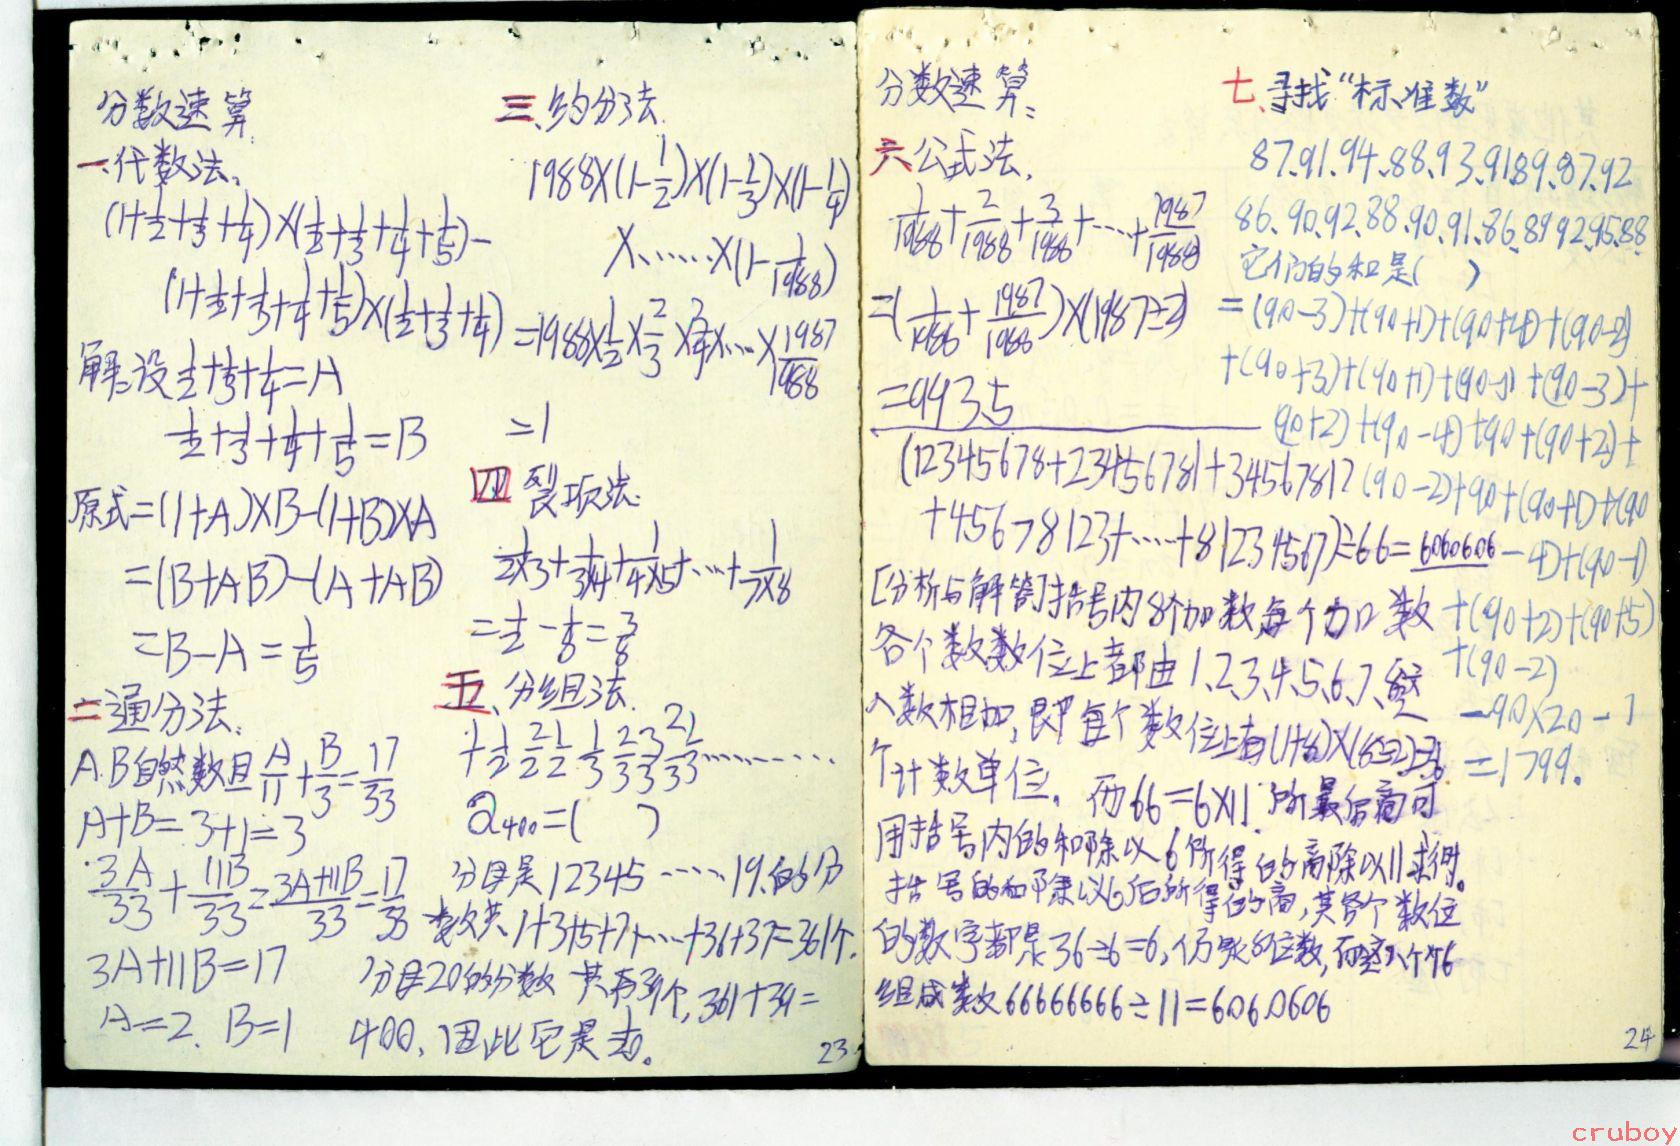 分数速算
一.代数法、
(1+1/2+1/3+1/4)×(1/2+1/3+1/4+1/5)-
(1+1/2+1/3+1/4+1/5)×(1/2+1/3+1/4)
解:设1/2+1/3+1/4=A
1/2+1/3+1/4+1/5=B
原式=(1+A)×B-(1+B)×A
=(B+AB)-(A+AB)
=B-A=1/5
二通分法、
A.B自然数且A/11+B/3=17/33
A+B=3+1=3
3A/33+11B/33=3A+11B/33=17/33
3A+11B=17
A=2. B=1
三、约分法.
1988×(1-1/2)×(1-1/3)×(1-1/4)
×……×(1-1/1988)
=1988×1/2×2/3×3/4×…×1987/1988
=1
四 裂项法.
1/2×3+1/3×4+1/4×5+…+1/7×8
=1/2-1/8=3/8
五、分组法.
1/1 1/2 2/2 1/2 1/3 2/3 3/3 2/3 1/3………
a400=( )
分母是12345……19.的分
数共1+3+5+7+…+36+37=361个.
分母20的分数 共有39个,361+39=
400,因此它是
23
分数速算:
六公式法、
1/1988+2/1988+3/1988+……+1987/1988
=(1/1988+1987/1988)×(1987÷2)
=993.5
(12345678+23456781+34567812
+45678123+……+81234567)÷66=6060606
[分析与解答]括号内8个加数每个加数
各个数数位上都由1、2、3、4、5、6、7、8这
八数相加,即每个数位上有(1+8)×(8÷2)=36
个计数单位. 而66=6×11.所最后商可
用括号内的和除以6所得的商除以11求得.
括号的和除以6后所得的商,其各个数位
的数字都是36÷6=6,仍是8位数,而这八个6
组成数66666666÷11=6060606
七、寻找“标准数”
87.91.94.88.93.91.89.87.92
86.90.92.88.90.91.86.89 92.95.88
它们的和是( )
=(90-3)+(90+1)+(90+4)+(90-2)
+(90+3)+(90+1)+(90-1)+(90-3)+
(90+2)+(90-4)+90+(90+2)+
(90-2)+90+(90+1)+(90
-4)+(90-1)
+(90+2)+(90+5)
+(90-2)
=90×20-1
=1799.
24
cruboy